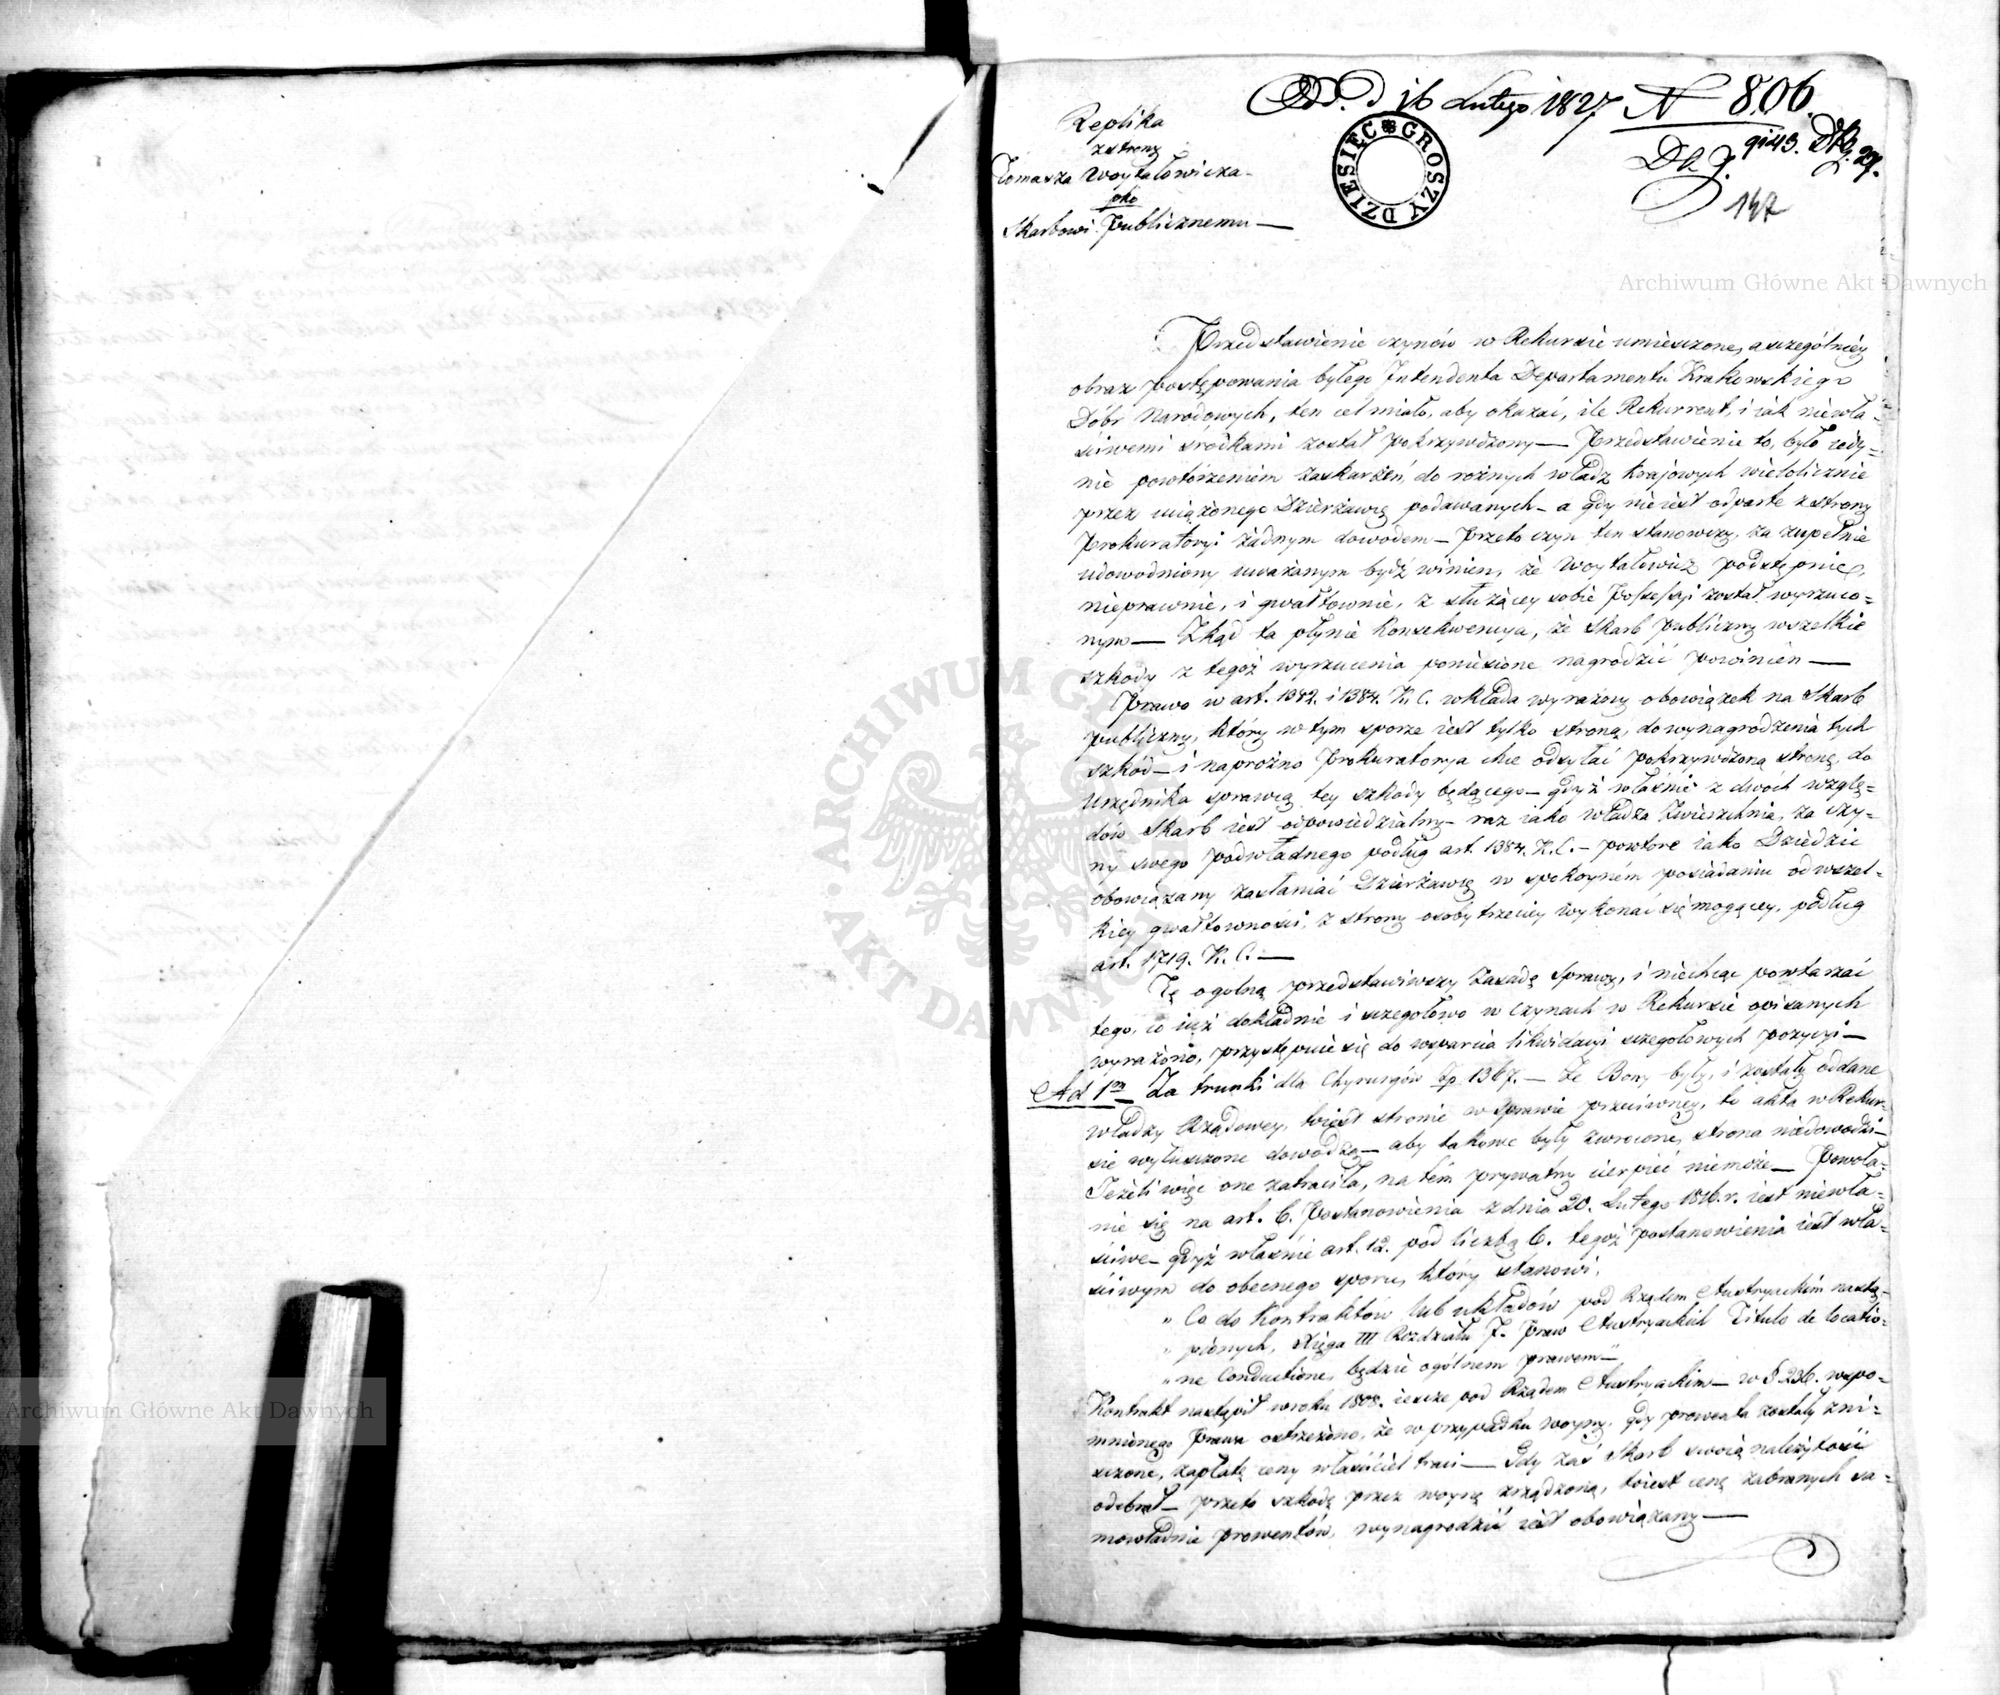 Dd. d 16 Lutego 1827. N 806.
Replika
z strony
Tomasza Woytalewicza
pko
Skarbowi Publicznemu —
DZIESIĘC GROSZY
147
Archiwum Główne Akt Dawnych
Przedstawienie czynów w Rekursie umieszczone, a szczególniey
obraz postępowania byłego Intendenta Departamentu Krakowskiego
Dóbr Narodowych, ten cel miało, aby okazać, ile Rekurrent, i iak niewła=
ściwemi środkami został pokrzywdzony — Przedstawienie to, było iedy=
nie powtórzeniem zaskarżeń, do rożnych władz Kraiowych wielolicznie
przez uciążonego Dzierżawcę podawanych — a gdy nie iest odparte z strony
Prokuratoryi żadnym dowodem — przeto czyn ten stanowczy, za zupełnie
udowodniony uważanym bydź winien, że Woytalewicz podstępnie,
nieprawnie, i gwałtownie, z służącey sobie Possessyi został wyrzuco=
nym — Zkąd ta płynie konsekwencya, że Skarb publiczny wszelkie
szkody z tegoż wyrzucenia poniesione nagrodzić powinien —
Prawo w art. 1382. i 1384. K. C. wkłada wyraźny obowiązek na Skarb
publiczny, który w tym sporze iest tylko stroną, do wynagrodzenia tych
szkód — i napróżno Prokuratorya chce odsyłać pokrzywdzoną stronę, do
Urzędnika sprawcą tey szkody będącego — gdyż właśnie z dwóch wzglę=
dów Skarb iest odpowiedzialny — raz iako władza Zwierzchnia, za czy=
ny swego podwładnego podług art. 1384. K. C. — powtore iako Dziedzic
obowiązany zasłaniać Dzierżawcę w spokoyném posiadaniu od wszel=
kiey gwałtowności, z strony osoby trzeciey wykonać się mogącey, podług
art. 1719. K. C. —
Tę ogolną przedstawiwszy zasadę sprawy, i niechcąc powtarzać
tego, co iuż dokładnie i szczegołowo w czynach w Rekursie opisanych
wyrażono, przystępuie się do wsparcia likwidacyi szczegołowych pozycyi —
Ad 1m Za trunki dla Chyrurgów Zp. 1367. — Ze Bony były, i zostały oddane
władzy Rządowey, toiest stronie w sprawie przeciwney, to akta w Rekur=
sie wyłuszczone dowodzą — aby takowe były zwrocone, strona niedowodzi —
Jeżeli więc one zatraciła, na tém prywatny cierpieć niemoże — Powoła=
nie się na art. 6. Postanowienia z dnia 20. Lutego 1816. r. iest niewła=
ściwe — gdyż właśnie art. 12. pod liczbą 6. tegoż postanowienia iest wła=
ściwym do obecnego sporu, który stanowi.
„ Co do Kontraktów lub układów pod Rządem Austryackim nastą=
„ pionych, Xięga III Rozdziału 7. Praw Austryackich Titulo de locatio=
„ ne Conductione, będzie ogólnem prawem —
Kontrakt nastąpił w roku 1808. iescze pod Rządem Austryackim — w § 236. wspo=
mnionego Prawa ostrzeżono, że w przypadku woyny, gdy prowenta zostały zni=
szczone, zapłatę ceny właściciel traci — Gdy zaś Skarb swoią należytość
odebrał — przeto szkodę przez woynę zrządzoną, toiest cenę zabranych sa=
mowładnie prowentów, wynagrodzić iest obowiązany —
ARCHIWUM GŁÓWNE AKT DAWNYCH
Archiwum Główne Akt Dawnych